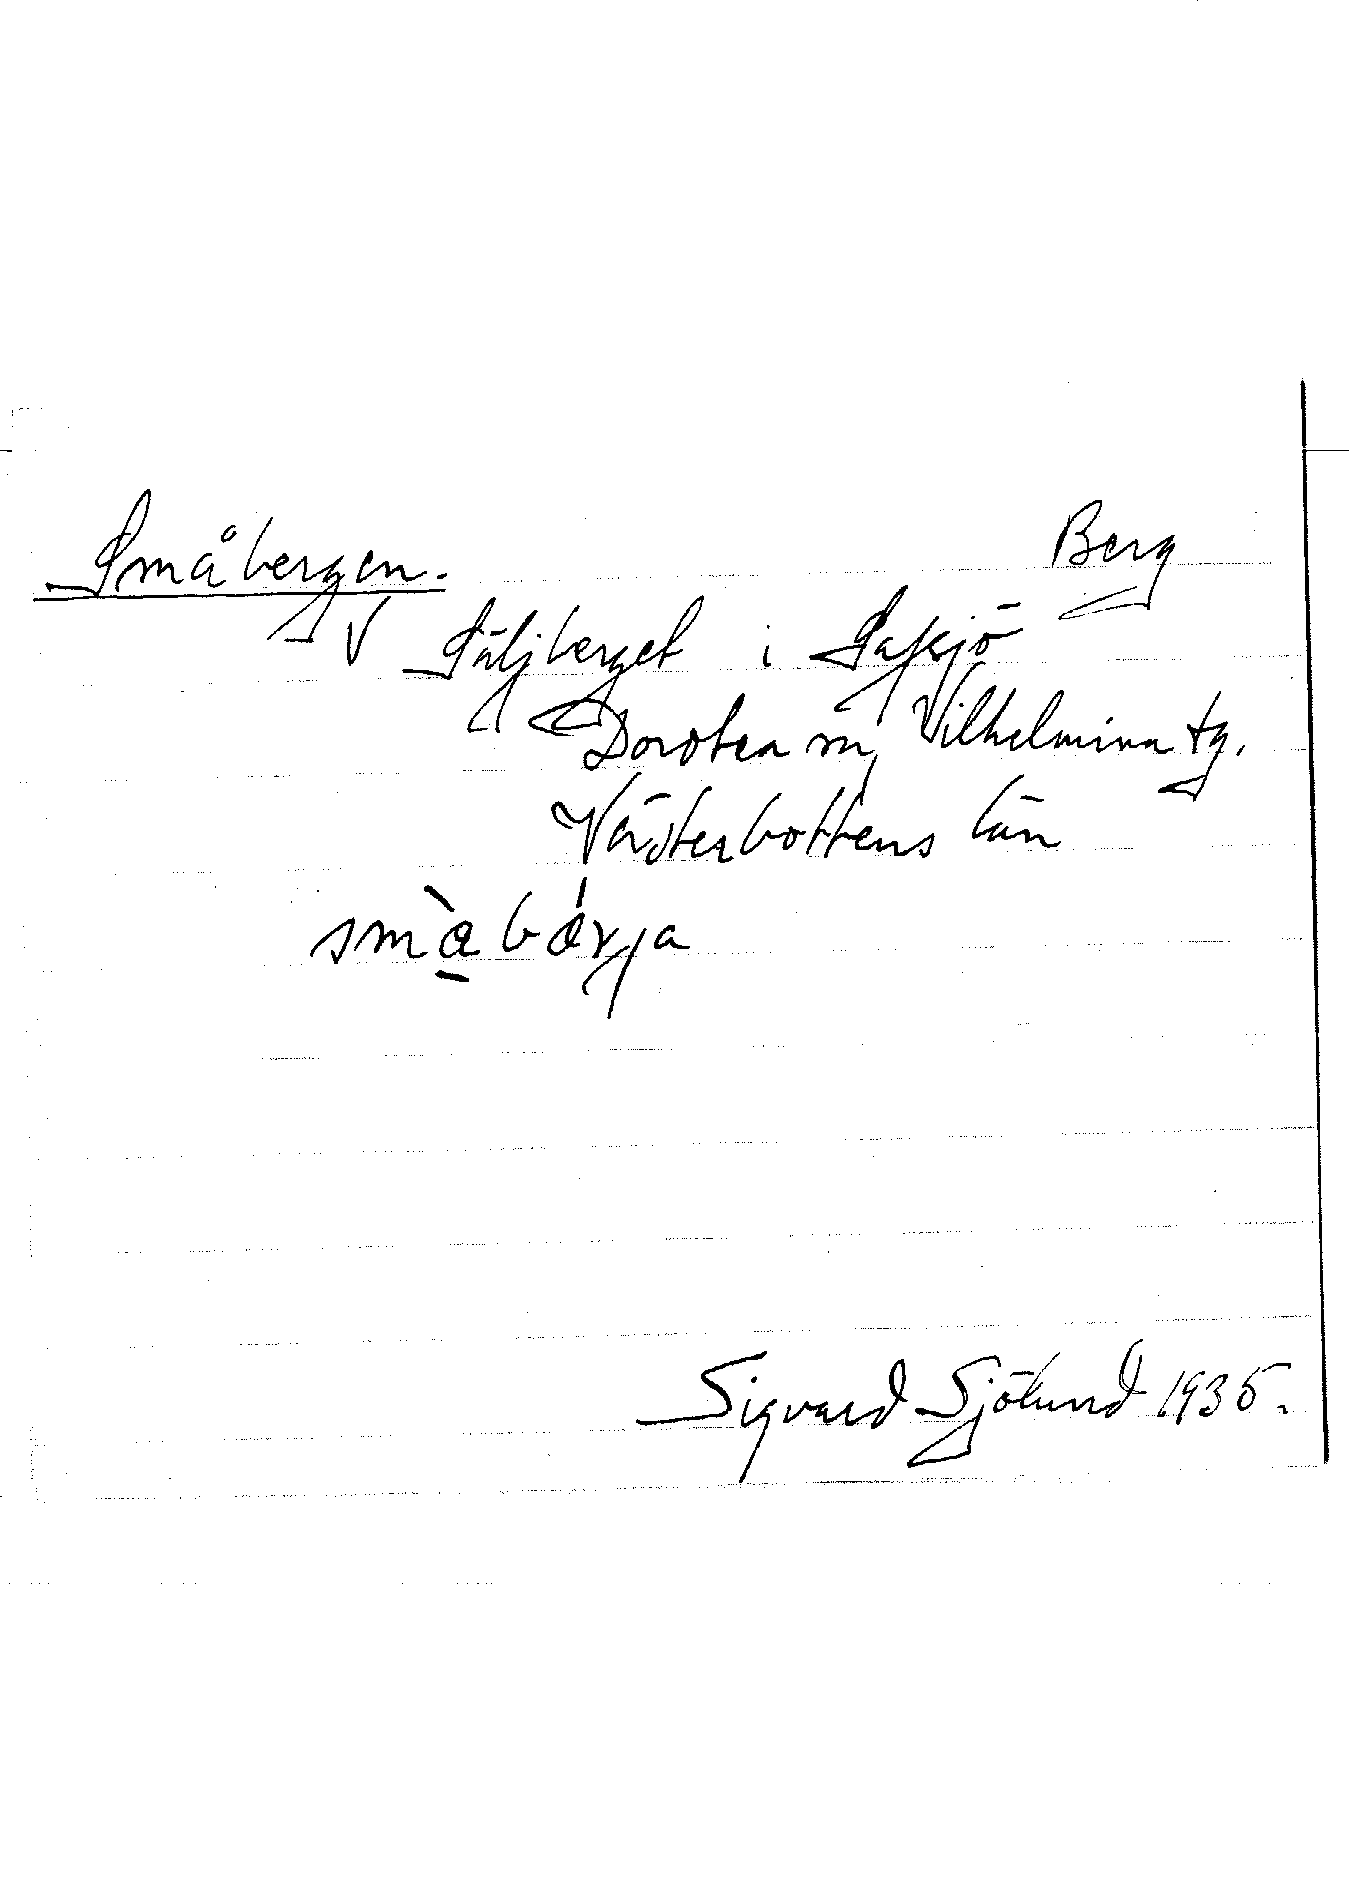 Småbergen. Berg
V Säljberget i Safsjö
Dorotea sn, Vilhelmina tg.
Västerbottens län
Sigvard Sjölund 1935.